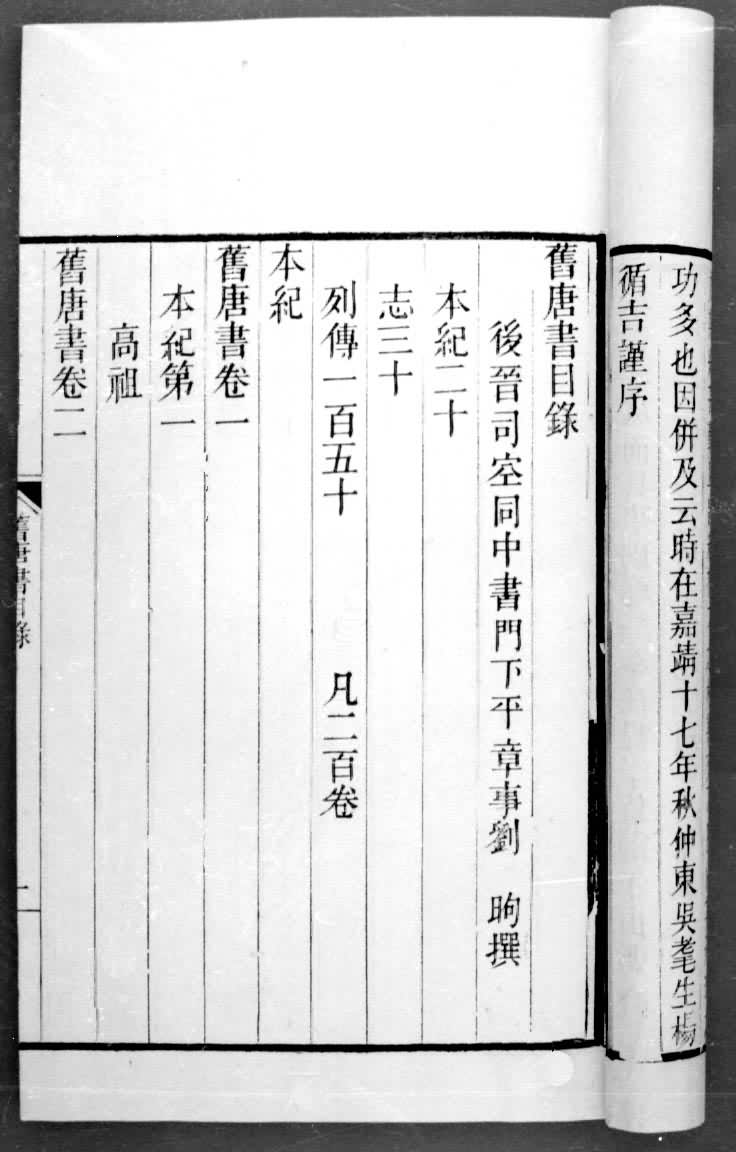 功多也因併及云時在嘉靖十七年秋仲東吳耄生楊
循吉謹序
舊唐書目錄
後晉司空同中書門下平章事劉　昫撰
本紀二十
志三十
列傳一百五十　凡二百卷
本紀
舊唐書卷一
本紀第一
高祖
舊唐書卷二
舊唐書目錄
一